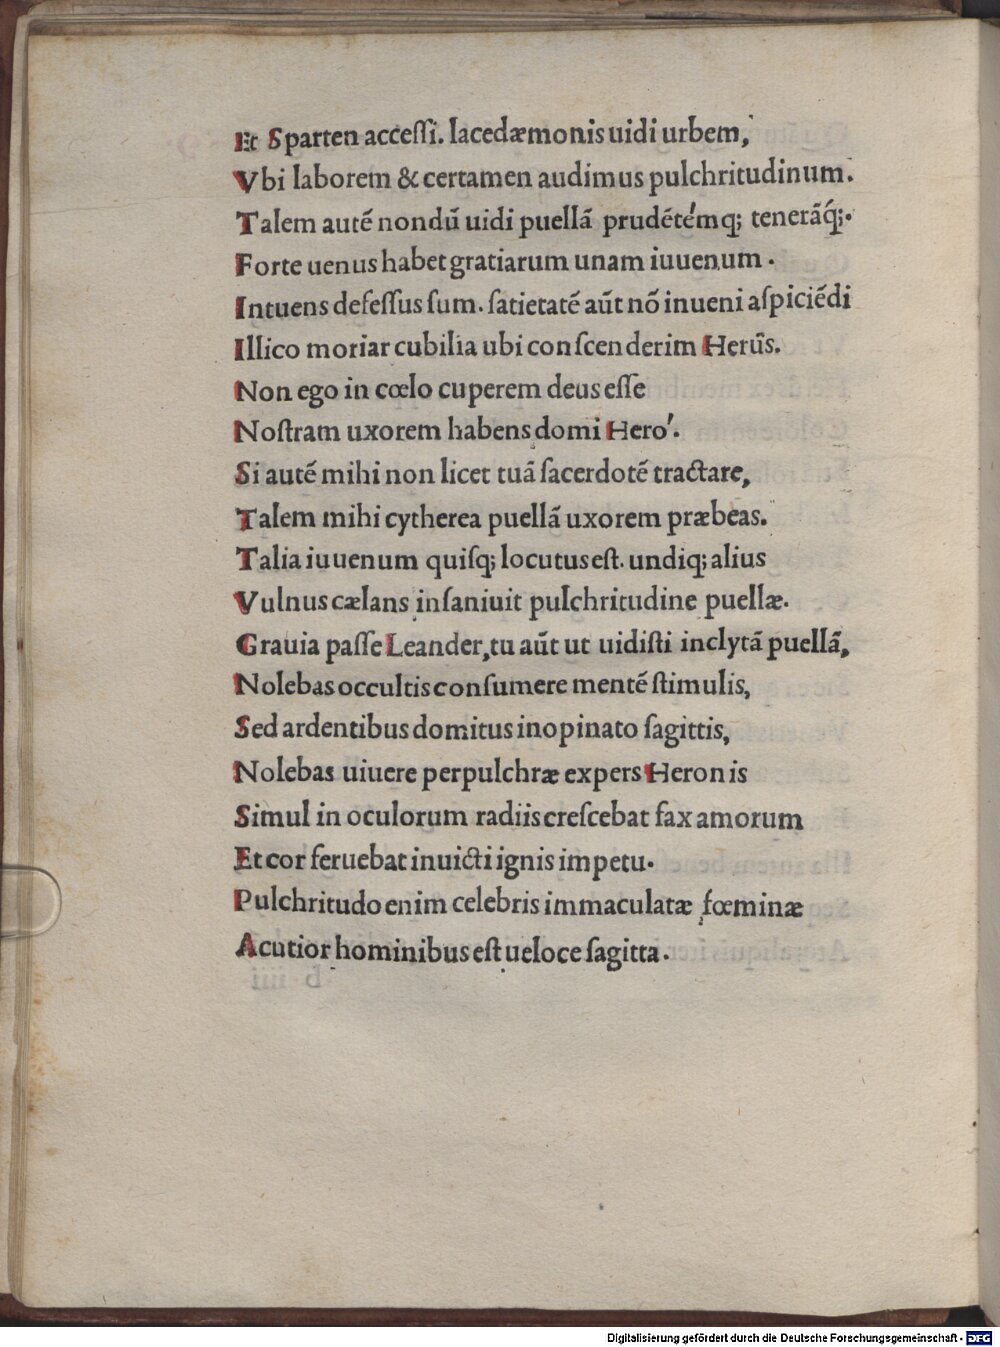 Et Sparten acceſſi. lacedæmonis uidi urbem,
Vbi laborem & certamen audimus pulchritudinum.
Talem autē nondū uidi puellā prudētémq; tenerāq́;.
Forte uenus habet gratiarum unam iuuenum.
Intuens defeſſus ſum. ſatietatē aūt nō inueni aſpiciēdi
Illico moriar cubilia ubi conſcenderim Herūs.
Non ego in cœlo cuperem deus eſſe
Noſtram uxorem habens domi Heró.
Si autē mihi non licet tuā ſacerdotē tractare,
Talem mihi cytherea puellā uxorem præbeas.
Talia iuuenum quiſq; locutus eſt. undiq; alius
Vulnus cælans inſaniuit pulchritudine puellæ.
Grauia paſſe Leander, tu aūt ut uidiſti inclytā puellā,
Nolebas occultis conſumere mentē ſtimulis,
Sed ardentibus domitus inopinato ſagittis,
Nolebas uiuere perpulchræ expers Heronis
Simul in oculorum radiis creſcebat fax amorum
Et cor feruebat inuicti ignis impetu.
Pulchritudo enim celebris immaculatæ fœminæ
Acutior hominibus eſt ueloce ſagitta.
Digitalisierung gefördert durch die Deutsche Forschungsgemeinschaft - DFG